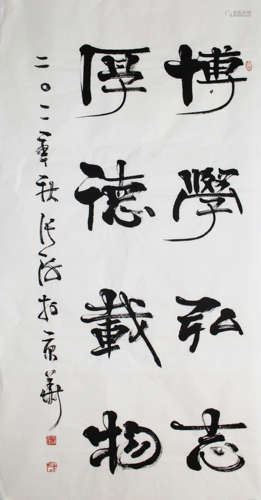 博學弘志
厚德載物
二〇一一年秋張海於京華